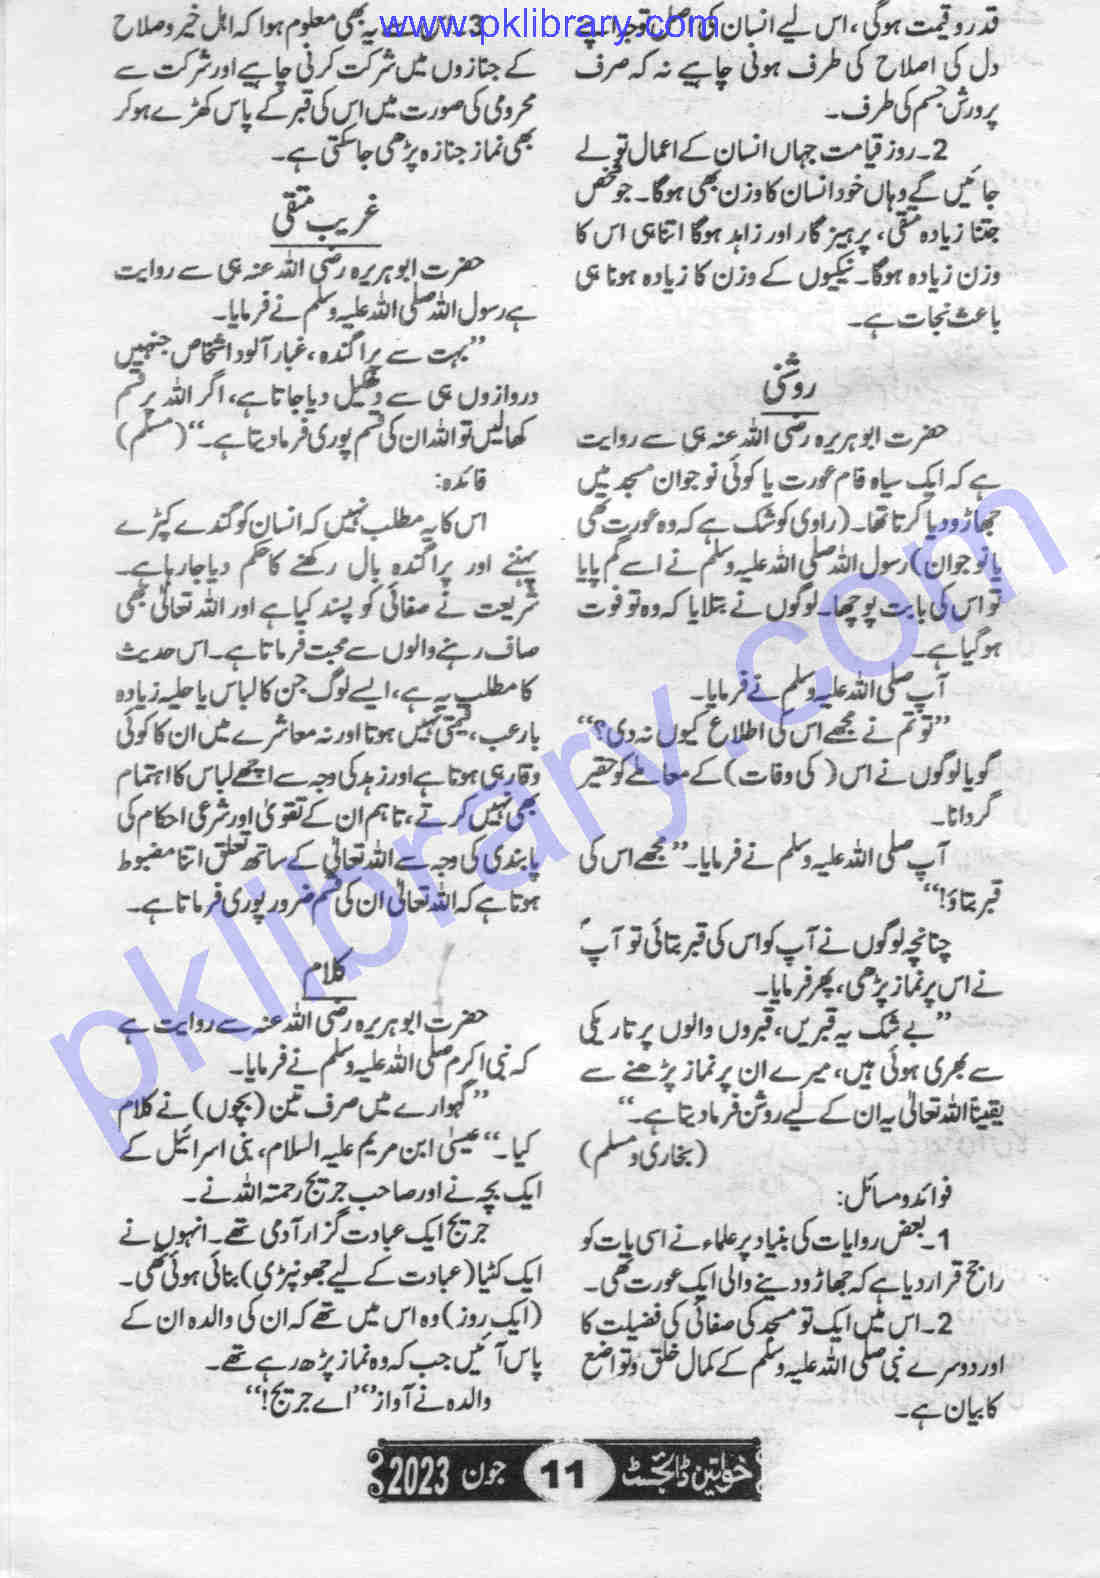 www.pklibrary.com
قدر و قیمت ہوگی، اس لیے انسان کی
دل کی اصلاح کی طرف ہونی چاہیے نہ کہ صرف
پرورش جسم کی طرف۔
2۔ روز قیامت جہاں انسان کے اعمال تولے
جائیں گے وہاں خود انسان کا وزن بھی ہوگا۔ جو شخص
جتنا زیادہ متقی، پرہیز گار اور زاہد ہوگا اتنا ہی اس کا
وزن زیادہ ہوگا۔ نیکیوں کے وزن کا زیادہ ہونا ہی
باعث نجات ہے۔
روشنی
حضرت ابو ہریرہ رضی اللہ عنہ ہی سے روایت
ہے کہ ایک سیاہ فام عورت یا کوئی نوجوان مسجد میں
جھاڑو دیا کرتا تھا۔ (راوی کو شک ہے کہ وہ عورت تھی
یا نوجوان) رسول اللہ صلی اللہ علیہ وسلم نے اسے گم پایا
تو اس کی بابت پوچھا۔ لوگوں نے بتلایا کہ وہ تو فوت
ہو گیا ہے۔
آپ صلی اللہ علیہ وسلم نے فرمایا۔
”تو تم نے مجھے اس کی اطلاع کیوں نہ دی؟“
گویا لوگوں نے اس (کی وفات) کے معاملے کو حقیر
گردانا۔
آپ صلی اللہ علیہ وسلم نے فرمایا۔ ”مجھے اس کی
قبر بتاؤ!“
چنانچہ لوگوں نے آپ کو اس کی قبر بتائی تو آپؐ
نے اس پر نماز پڑھی، پھر فرمایا۔
”بے شک یہ قبریں، قبروں والوں پر تاریکی
سے بھری ہوئی ہیں، میرے ان پر نماز پڑھنے سے
یقیناً اللہ تعالیٰ یہ ان کے لیے روشن فرما دیتا ہے۔“
(بخاری و مسلم)
فوائد و مسائل:
1۔ بعض روایات کی بنیاد پر علماء نے اسی بات کو
راجح قرار دیا ہے کہ جھاڑو دینے والی ایک عورت تھی۔
2۔ اس میں ایک تو مسجد کی صفائی کی فضیلت کا
اور دوسرے نبی صلی اللہ علیہ وسلم کے کمال خلق و تواضع
کا بیان ہے۔
3۔ یہ بھی معلوم ہوا کہ اہل خیر و صلاح
کے جنازوں میں شرکت کرنی چاہیے اور شرکت سے
محرومی کی صورت میں اس کی قبر کے پاس کھڑے ہو کر
بھی نماز جنازہ پڑھی جا سکتی ہے۔
غریب متقی
حضرت ابو ہریرہ رضی اللہ عنہ ہی سے روایت
ہے رسول اللہ صلی اللہ علیہ وسلم نے فرمایا۔
”بہت سے پراگندہ، غبار آلود اشخاص جنہیں
دروازوں ہی سے دھکیل دیا جاتا ہے، اگر اللہ پر قسم
کھا لیں تو اللہ ان کی قسم پوری فرما دیتا ہے۔“ (مسلم)
فائدہ:
اس کا یہ مطلب نہیں کہ انسان کو گندے کپڑے
پہننے اور پراگندہ بال رکھنے کا حکم دیا جا رہا ہے۔
شریعت نے صفائی کو پسند کیا ہے اور اللہ تعالیٰ بھی
صاف رہنے والوں سے محبت فرماتا ہے۔ اس حدیث
کا مطلب یہ ہے، ایسے لوگ جن کا لباس یا حلیہ زیادہ
بارعب، قیمتی نہیں ہوتا اور نہ معاشرے میں ان کا کوئی
وقار ہی ہوتا ہے اور زہد کی وجہ سے اچھے لباس کا اہتمام
بھی نہیں کرتے، تاہم ان کے تقویٰ اور شرعی احکام کی
پابندی کی وجہ سے اللہ تعالیٰ کے ساتھ تعلق اتنا مضبوط
ہوتا ہے کہ اللہ تعالیٰ ان کی قسم ضرور پوری فرماتا ہے۔
کلام
حضرت ابو ہریرہ رضی اللہ عنہ سے روایت ہے
کہ نبی اکرم صلی اللہ علیہ وسلم نے فرمایا۔
”گہوارے میں صرف تین (بچوں) نے کلام
کیا۔“ عیسیٰ ابن مریم علیہ السلام، بنی اسرائیل کے
ایک بچہ نے اور صاحب جریج رحمتہ اللہ نے۔
جریج ایک عبادت گزار آدمی تھے۔ انہوں نے
ایک کٹیا (عبادت کے لیے جھونپڑی) بنائی ہوئی تھی۔
(ایک روز) وہ اس میں تھے کہ ان کی والدہ ان کے
پاس آئیں جب کہ وہ نماز پڑھ رہے تھے۔
والدہ نے آواز ”اے جریج!“
خواتین ڈائجسٹ 11 جون 2023
pklibrary.com